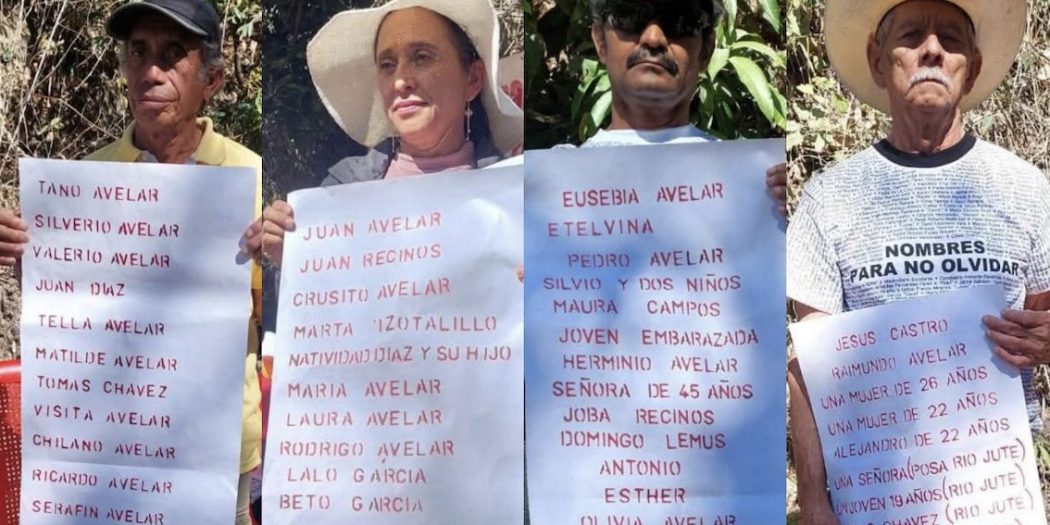 TANO AVELAR
SILVERIO AVELAR
VALERIO AVELAR
JUAN DIAZ
TELLA AVELAR
MATILDE AVELAR
TOMAS CHAVEZ
VISITA AVELAR
CHILANO AVELAR
RICARDO AVELAR
SERAFIN AVELAR
JUAN AVELAR
JUAN RECINOS
CRUSITO AVELAR
MARTA IZOTALILLO
NATIVIDAD DIAZ Y SU HIJO
MARIA AVELAR
LAURA AVELAR
RODRIGO AVELAR
LALO GARCIA
BETO GARCIA
EUSEBIA AVELAR
ETELVINA
PEDRO AVELAR
SILVIO Y DOS NIÑOS
MAURA CAMPOS
JOVEN EMBARAZADA
HERMINIO AVELAR
SEÑORA DE 45 AÑOS
JOBA RECINOS
DOMINGO LEMUS
ANTONIO
ESTHER
OLIVIA AVELAR
NOMBRES
PARA NO OLVIDAR
JESUS CASTRO
RAIMUNDO AVELAR
UNA MUJER DE 26 AÑOS
UNA MUJER DE 22 AÑOS
ALEJANDRO DE 22 AÑOS
UNA SEÑORA (POSA RIO JUTE)
UN JOVEN 19 AÑOS (RIO JUTE)
CHAVEZ (RIO JUTE)